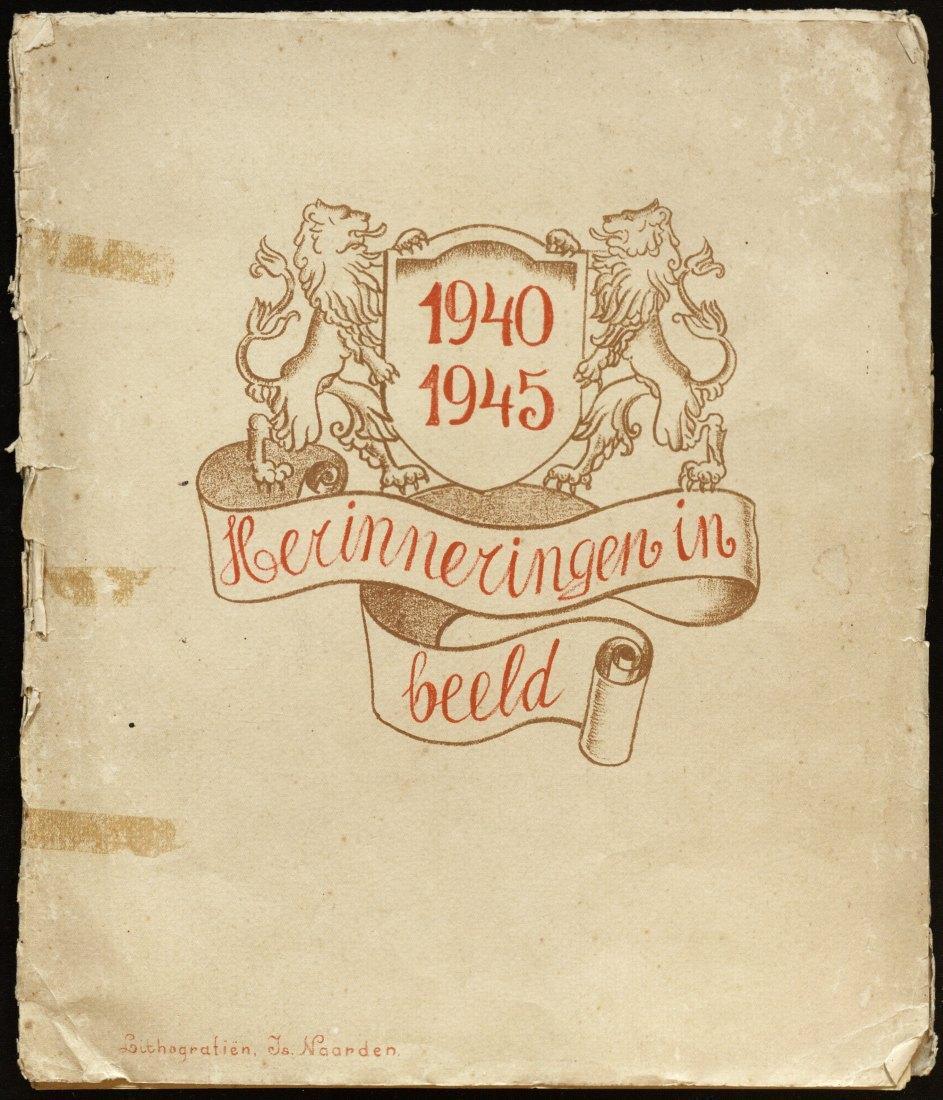 1940
1945
Herinneringen in
beeld
Lithografiën, Is. Naarden.